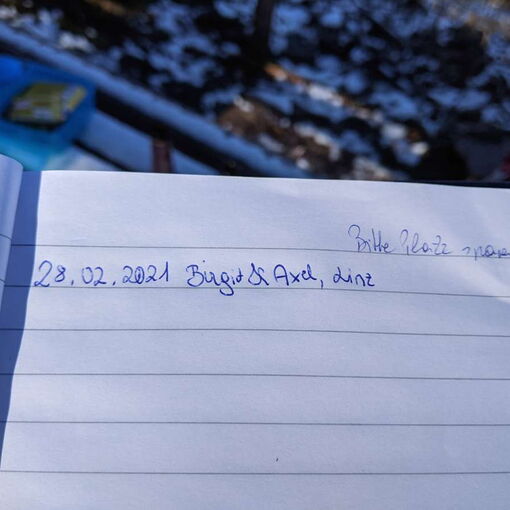 Bitte Platz sparen
28.02.2021 Birgit & Axel, Linz